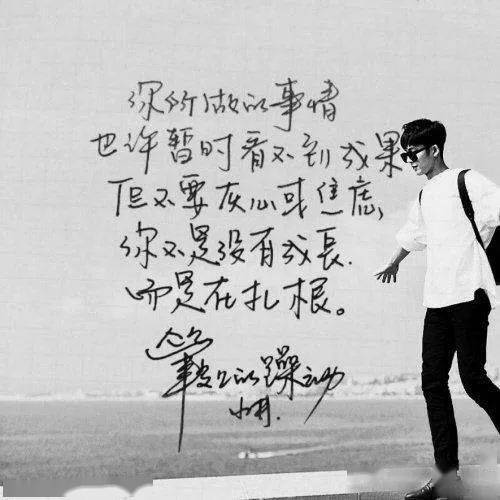 你所做的事情
也许暂时看不到成果
但不要灰心或焦虑,
你不是没有成長.
而是在扎根。
筆尖上的躁动